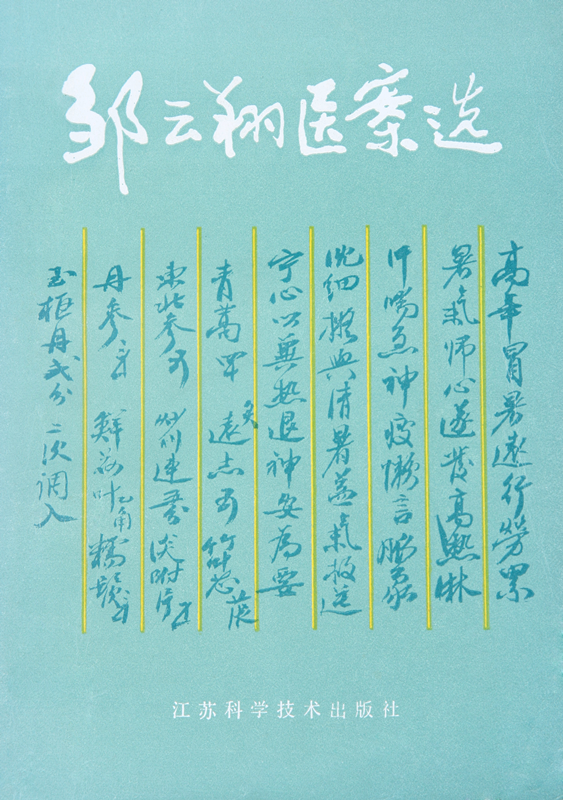 邹云翔医案选
高年冒暑远行劳累
暑气师心遂发高热淋
汗喘急神疲懒言脉象
洪细拟与清暑益气 扶逆
宁心以冀热退神安为要
青蒿 远志 竹卷 灰
东北参 川连 淡附片
丹参 鲜荷叶乙角 糯
玉枢丹弍分 二次调入
江苏科学技术出版社